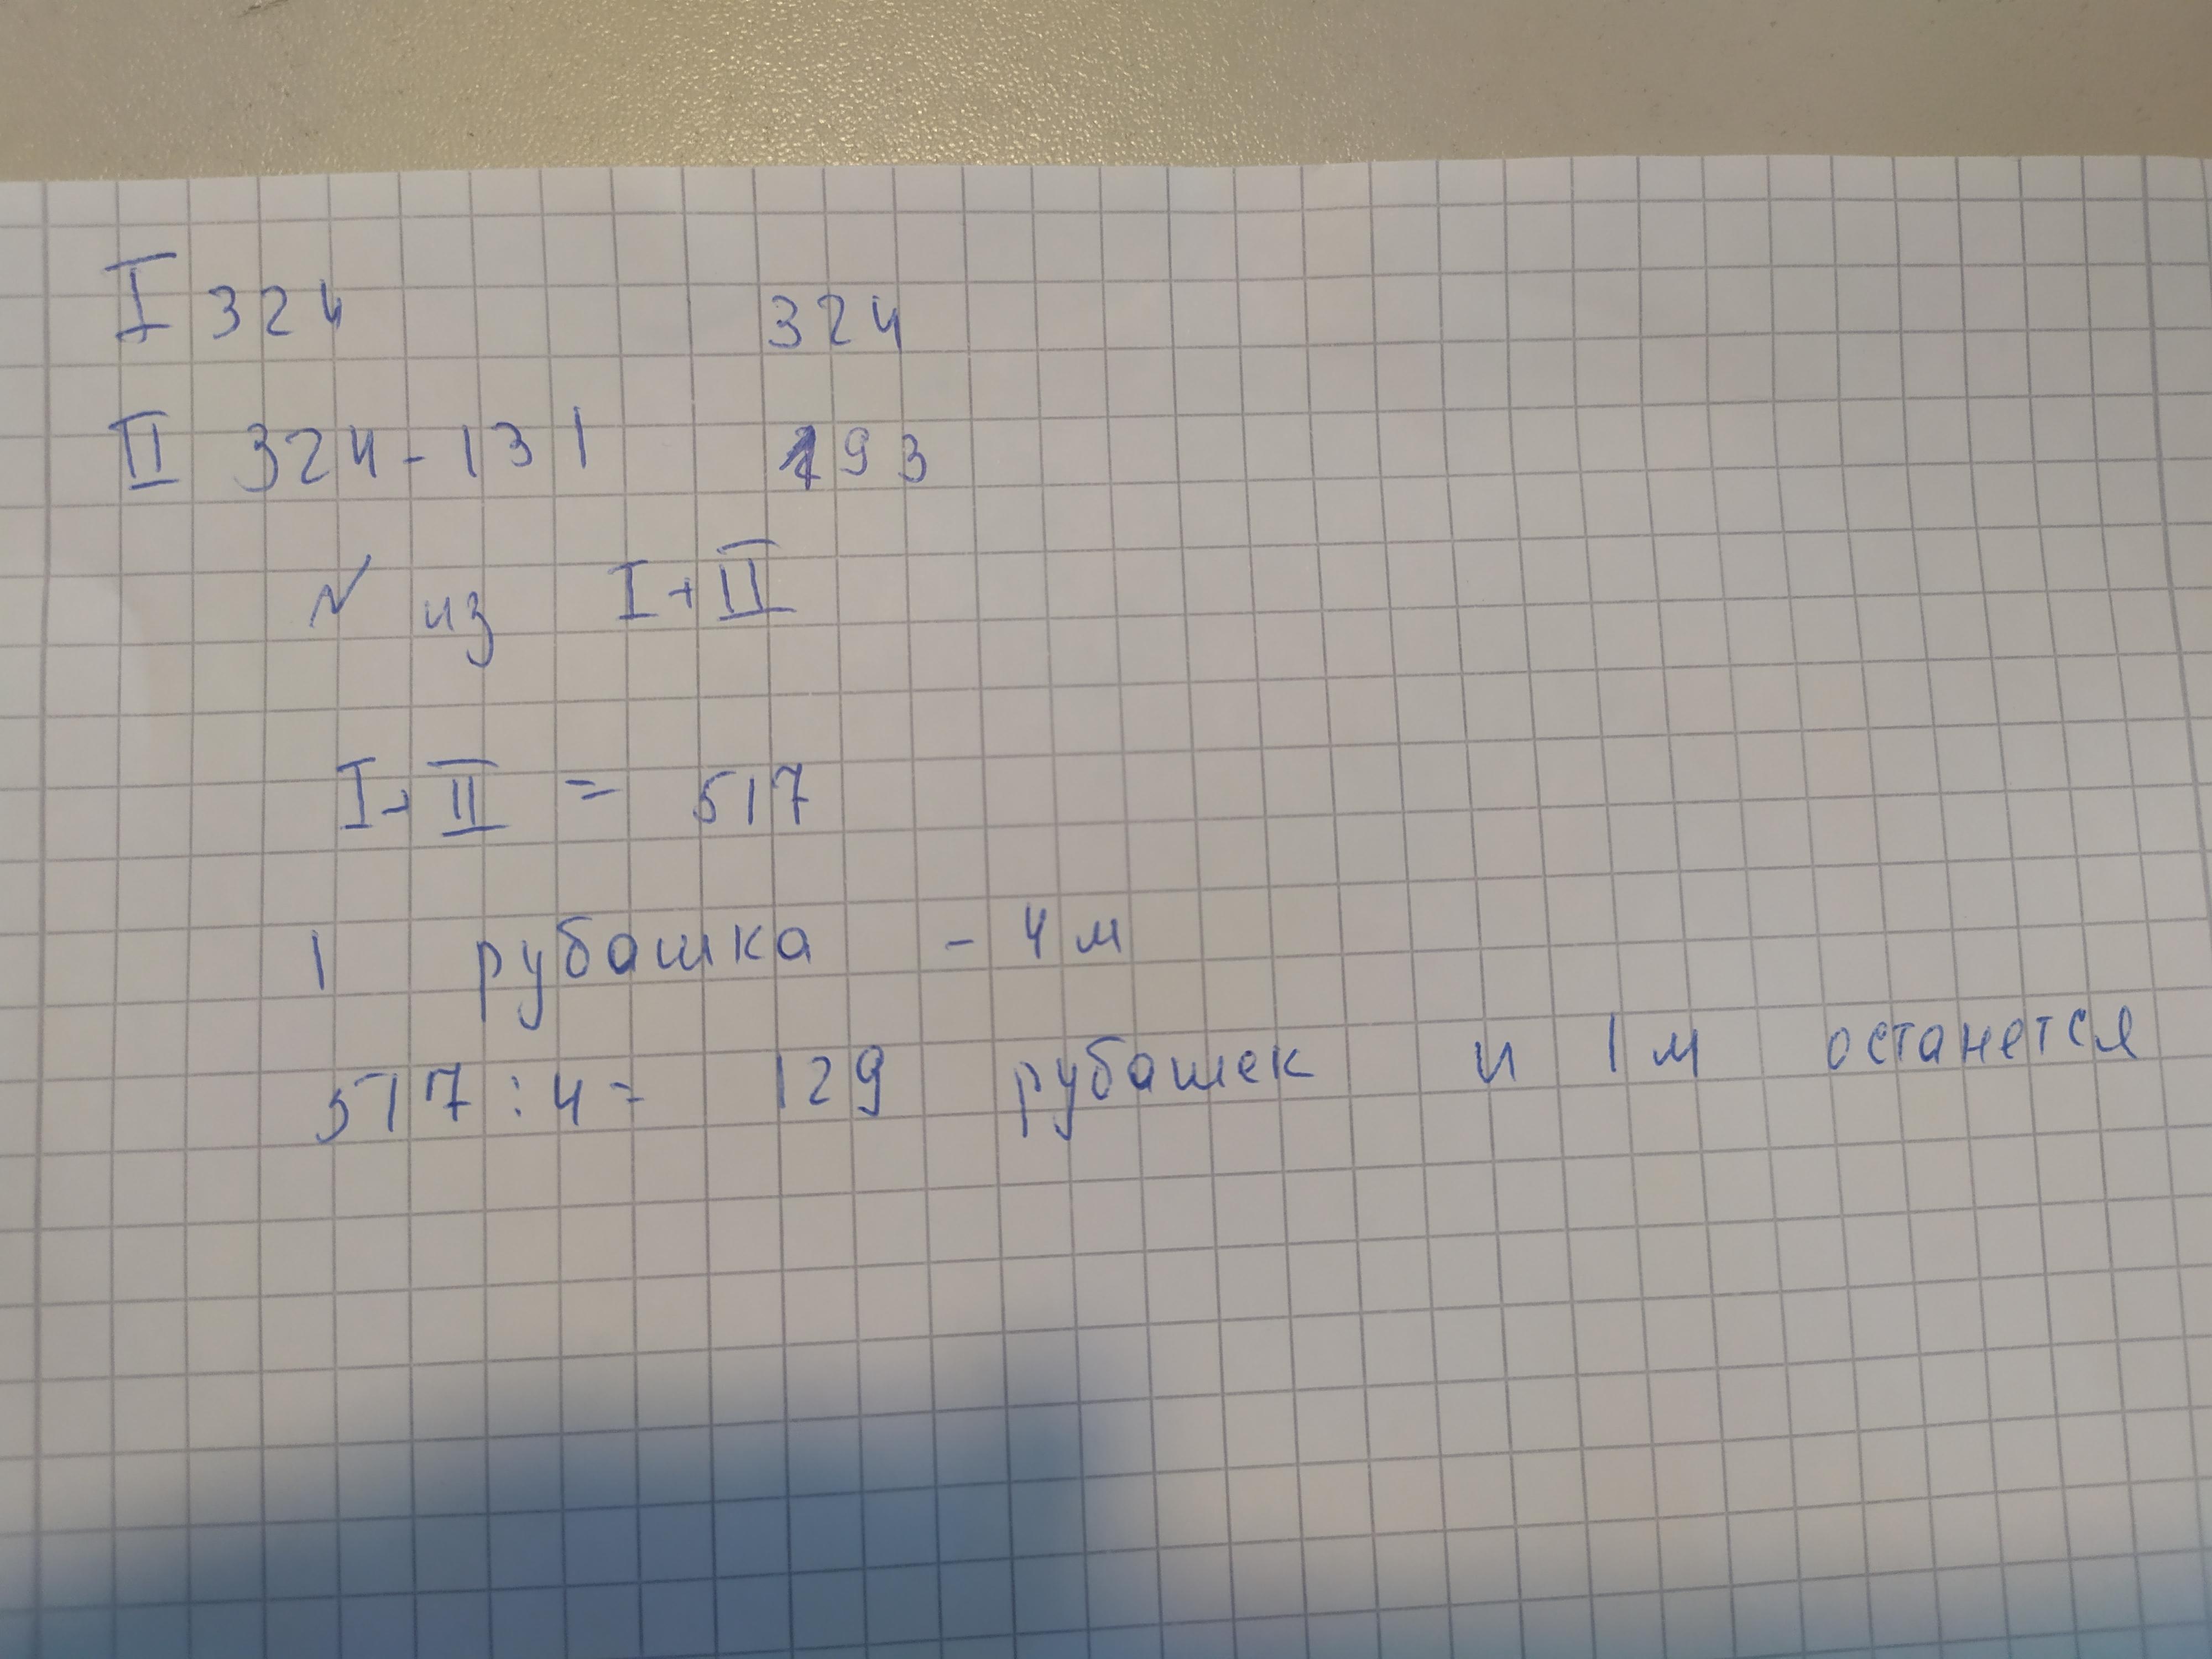 I 324 324
II 324-131 193
N из I+II
I+II = 517
1 рубашка - 4 м
517:4= 129 рубашек и 1 м останется